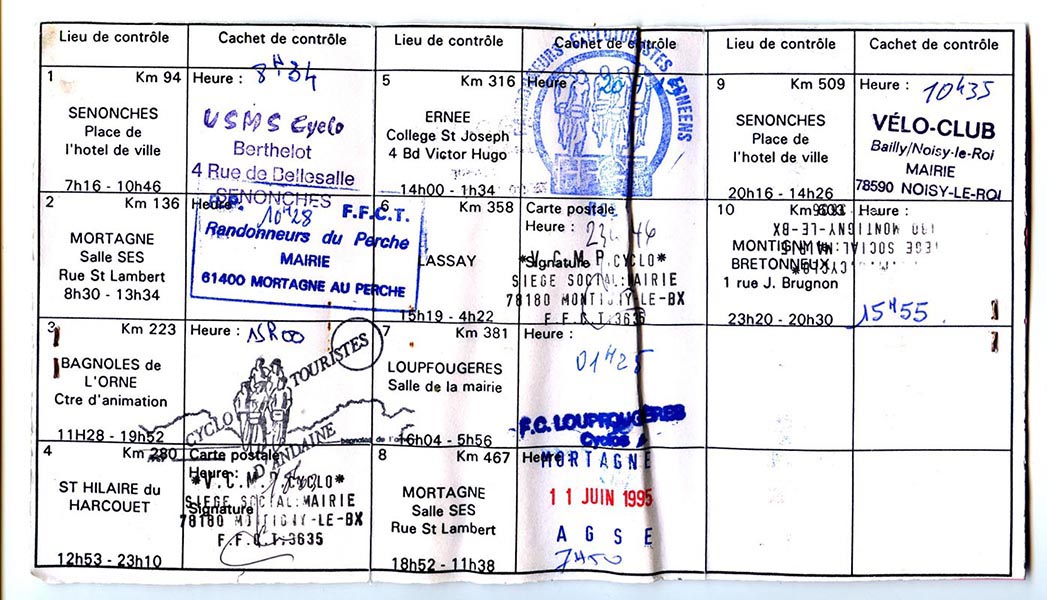 Lieu de contrôle
Cachet de contrôle
Lieu de contrôle
Cachet de contrôle
Lieu de contrôle
Cachet de contrôle
1 Km 94
SENONCHES
Place de
l'hotel de ville
7h16 - 10h46
Heure : 8H34
USMS Cyclo
Berthelot
4 Rue de Bellesalle
SENONCHES
2 Km 136
MORTAGNE
Salle SES
Rue St Lambert
8h30 - 13h34
Heure
10H28 F.F.C.T.
Randonneurs du Perche
MAIRIE
61400 MORTAGNE AU PERCHE
3 Km 223
BAGNOLES de
L'ORNE
Ctre d'animation
11H28 - 19h52
Heure : 15h00
CYCLO TOURISTES
D'ANDAINE
bagnoles de l'orne
4 Km 280
ST HILAIRE du
HARCOUET
12h53 - 23h10
Carte postale
Heure :
Signature
*V.C.M.P.CYCLO*
SIEGE SOCIAL:MAIRIE
78180 MONTIGNY-LE-BX
F.F.C.T.3635
5 Km 316
ERNEE
College St Joseph
4 Bd Victor Hugo
14h00 - 1h34
Heure :
CYCLOTOURISTES ERNEENS
6 Km 358
LASSAY
15h19 - 4h22
Carte postale
Heure : 23h46
Signature
*V.C.M.P.CYCLO*
SIEGE SOCIAL:MAIRIE
78180 MONTIGNY-LE-BX
F.F.C.T.3635
7 Km 381
LOUPFOUGERES
Salle de la mairie
16h04 - 5h56
Heure :
01H25
F.C. LOUPFOUGERES
Cyclos
8 Km 467
MORTAGNE
Salle SES
Rue St Lambert
18h52 - 11h38
Heure
MORTAGNE
11 JUIN 1995
AGSE
7H50
9 Km 509
SENONCHES
Place de
l'hotel de ville
20h16 - 14h26
Heure : 10H35
VÉLO-CLUB
Bailly/Noisy-le-Roi
MAIRIE
78590 NOISY-LE-ROI
10 Km
MONTIGNY le
BRETONNEUX
1 rue J. Brugnon
23h20 - 20h30
Heure :
MONTIGNY-LE-BX
SIEGE SOCIAL:MAIRIE
15H55